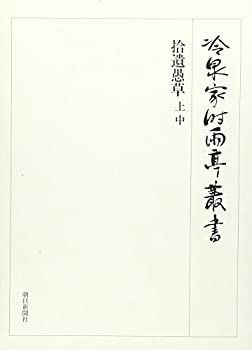 冷泉家時雨亭叢書
拾遺愚草 上 中
朝日新聞社